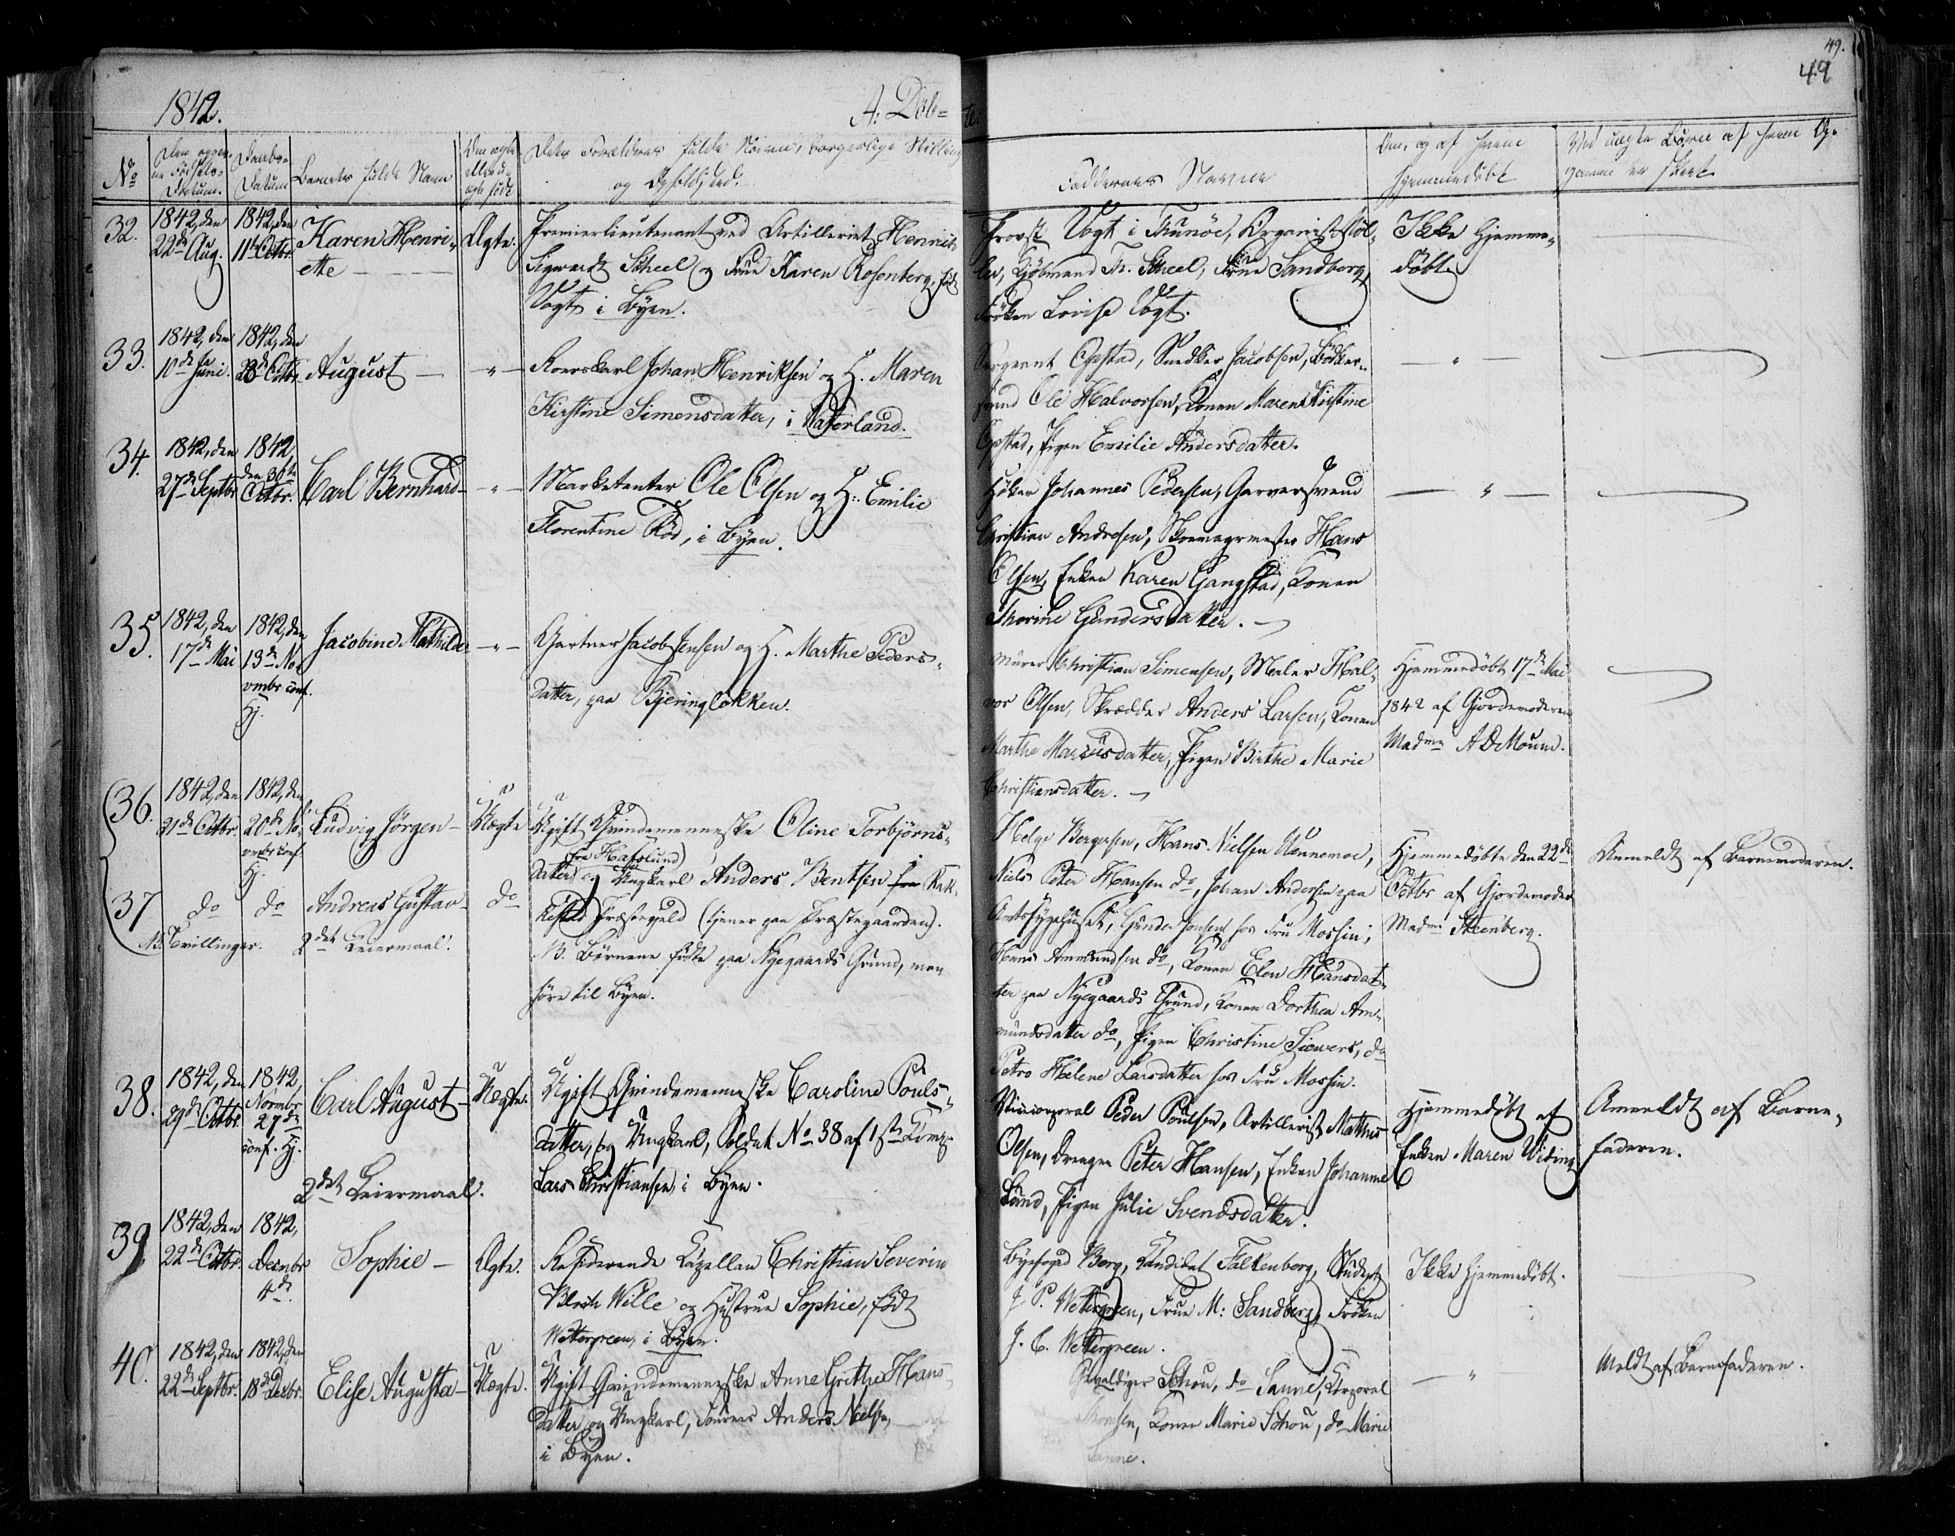 49.
49
1842.
A. Döb=
te.
No
Barnets fulde Navn
og Opholdssted.
Faddernes Navne
hjemmedöbt
32.
1842, den
22de Aug.
1842, den
11te Octbr.
Karen Henri-
ette
Ægte.
Premierlieutenant ved Artilleriet Henrich
Sigwardt Scheel og Frue Karen Rosenberg, født
Vogt i Byen.
Provst Vogt i Thunöe, Organist Möl-
ler, Kjöbmand Th. Scheel, Frue Sandberg,
Fröken Lovise Vogt.
Ikke hjemme-
döbt.
33.
1842, den
10de Juni.
1842, den
23de Octbr.
August
-"-
Johan Henriksen og H. Maren
Kirstine Simensdatter, i Vaterland.
Sergeant Opstad, Snedker Jacobsen, Bödker-
svend Ole Halvorsen, Konen Maren Kirstine
Opstad, Pigen Emilie Andersdatter.
"
34.
1842, den
27de Septbr
1842,
den 30te
Octbr.
Carl Bernhard
-"-
Marketenter Ole Olsen og H. Emilie
Florentine Röd, i Byen.
Höker Johannes Pedersen, Garversvend
Christian Andresen, Skomagermester Hans
Olsen, Enken Karen Gangstad, Konen
Thorine Gundersdatter.
"
35.
1842, den
17de Mai
1842, den
13de No-
vmbr conf.
Hj.
Jacobine Mathilde
-"-
Gartner Jacob Jensen og H. Marthe Peders-
datter, paa Bjeringlökken.
Murer Christian Simensen, Maler Hal-
vor Olsen, Skrædder Anders Larsen, Konen
Marthe Marcusdatter, Pigen Birthe Marie
Christiansdatter.
Hjemmedöbt 17de Mai
1842 af Gjordemoderen
Madme A D Moum.
36.
1842, den
21de Octbr.
1842, den
20de No-
vmbr conf
Hj.
Ludvig Jörgen
Uægte
Ugift Qvindemenneske Oline Torbjörns-
(fra Hafslund)
datter og Ungkarl Anders Bentsen fra Rak-
kestad Præstegield (tjener paa Præstegaarden).
N.B. Börnene födte paa Nyegaards Grund, men
höre til Byen.
Helge Bergersen, Hans Nielsen Nennemoe,
Niels Peter Hansen do, Johan Andersen paa
Amtssygehuset, Gunder Jonsen hos Fru Mossin,
Hans Ammundsen do, Konen Elen Hansdat-
ter paa Nyegaards Grund, Konen Dorthea Am-
mundsdatter do, Pigen Christine Siewers, do
Petro Helene Larsdatter hos Fru Mossin.
Hjemmedöbte den 22de
Octbr af Gjordemoder
Madme Steenberg.
Anmeldt af Barnemoderen.
37
do
do
Andreas Gustav
do
NB. Tvillinger.
2det Leiermaal.
38.
1842, den
29de Octbr.
1842,
Novmbr
27de
conf. Hj.
Carl August
Uægte.
2det Leiermaal.
Ugift Qvindemenneske Caroline Pouls-
datter, og Ungkarl, Soldat No 38 af 1ste Comp.
Lars Christiansen i Byen.
Vicecorporal Peder Poulsen, Artillerist Mathias
Olsen, Drengen Peter Hansen, Enken Johanne
Lund, Pigen Julie Svendsdatter.
Hjemmedöbt af
Enken Maren Widing
Anmeldt af Barne-
faderen.
39
1842, den
22de Octbr.
1842,
Decmbr
4de.
Sophie
Ægte.
Residerende Capellan Christian Severin
Blom Wille og Hustrue Sophie, født
Wettergreen, i Byen.
Byefoged Borg, Candidat Falkenborg, Student
J. P. Wettergreen, Frue M: Sandberg, Fröken
J. C. Wettergreen.
Ikke hjemmedöbt.
40.
1842, den
22de Septbr.
1842, den
18de Decbr.
Elise Augusta
Uægte.
Ugift Qvindemenneske Anne Grethe Hans-
datter og Ungkarl, Anders Nielsen,
i Byen.
Gevaldiger Schou, do Sanne, Korporal
Thorsen, Konen Marie Schou, do Marie
Sanne.
"
Meldt af Barnefaderen.